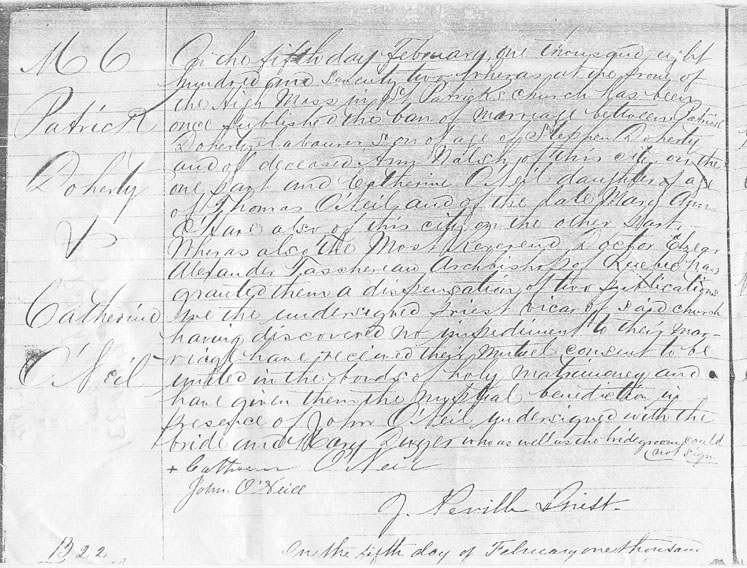 M 6
Patrick
Doherty
&
Catherine
O'Neil
On the fifth day February one thousand eight
hundred and seventy two Wheras at the prone of
the High Mass in St Patricks church has been
once published the ban of marriage between Patrick
Doherty Labourer son of age of Stephen Doherty
and of deceased Ann Walsh of this city on the
one part and Catherine O'Neil daughter of age
of Thomas O'Neil and of the late Mary Ann
O'Hare also of this city on the other part
Wheras also the Most Reverend Doctor Elzear
Alexander Taschereau Archbishop of Quebec has
granted them a dispensation of two publications
we the undersigned priest vicar of said church
having discovered no impediment to their mar-
riage have received their mutuel consent to be
united in the bonds of holy matrimony and
have given them the nuptial benediction in
presence of John O'Neil undersigned with the
bride and Mary who as well as the bridegroom could
not sign
+ Catherine O'Neil
John. O'Neill
J. Neville Priest.
B 22
On the fifth day of February one thousan